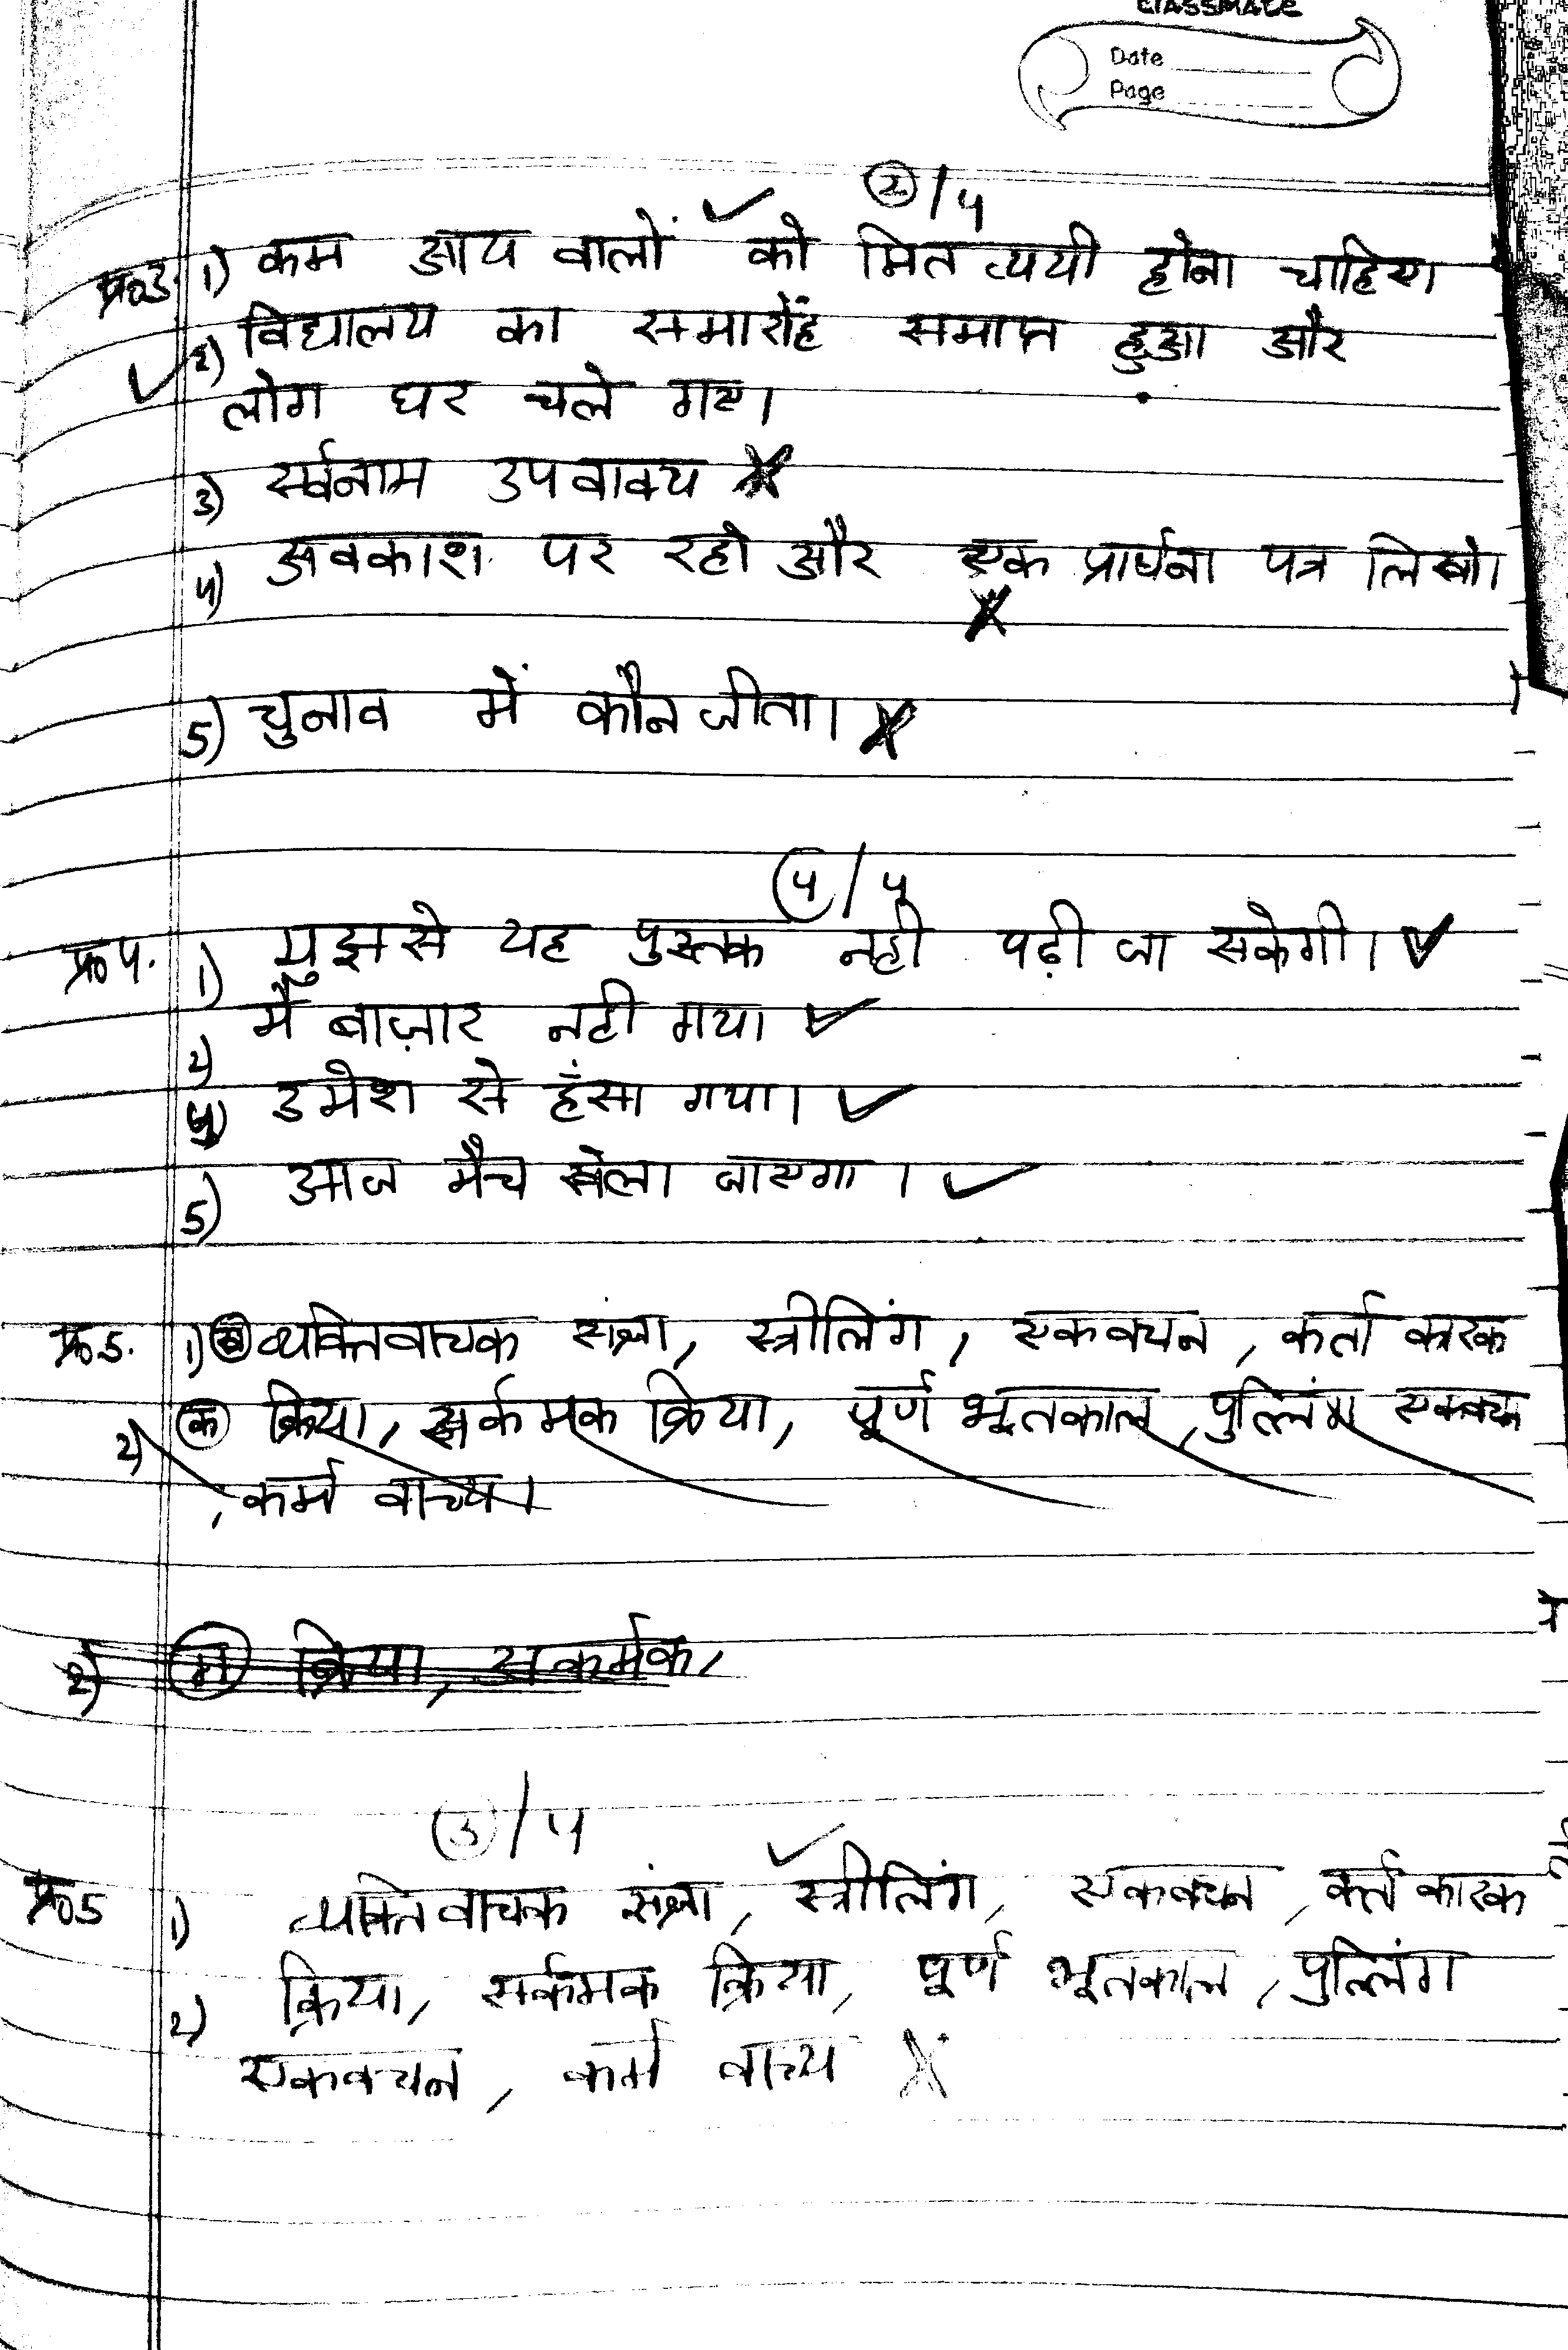 classmate
Date
Page
2/4
प्र०3. 1) कम आय वालों को मितव्ययी होना चाहिए।
2) विद्यालय का समारोंह समाप्त हुआ और
लोग घर चले गए।
3) र्स्वनाम उपवाक्य
4) अवकाश पर रहो और एक प्रार्थना पत्र लिखो।
5) चुनाव में कौन जीता।
4/4
प्र०4. 1) मुझसे यह पुस्तक नही पढ़ी जा सकेगी।
2) मैं बाज़ार नही गया।
4) उमेश से हँसा गया।
5) आज मैच खेला जाएगा।
प्र०5. 1) व्यक्तिवाचक संज्ञा, स्त्रीलिंग, एकवचन, कर्ता कारक
2) क क्रिया, सर्कमक क्रिया, पूर्ण भूतकाल, पुल्लिंग एकवचन
, कर्म वाच्य।
2) ग क्रिया, सकर्मक,
3/4
प्र०5 1) व्यक्तिवाचक संज्ञा, स्त्रीलिंग, एकवचन, कर्त कारक
2) क्रिया, सर्कमक क्रिया, पूर्ण भूतकाल, पुल्लिंग
एकवचन, कर्म वाच्य